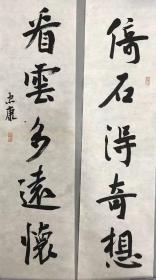 倚石得奇想
看雲多遠懷
忠康